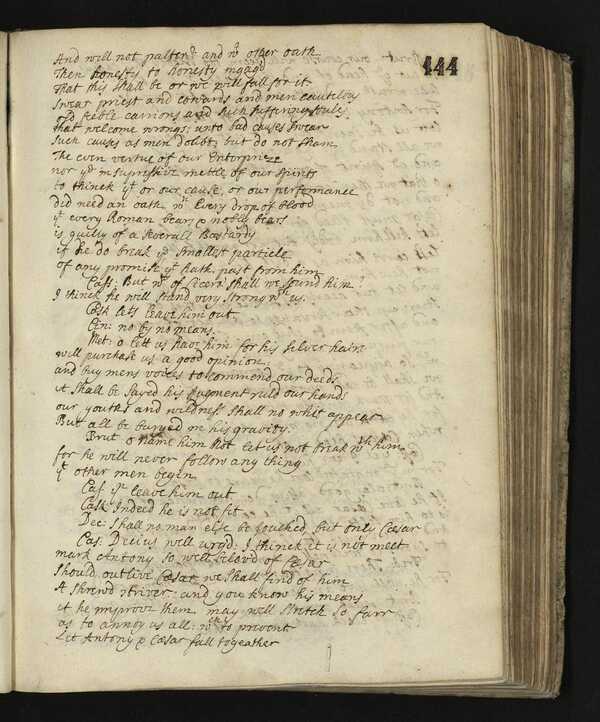 444
And will not palter? and wt other oath
Then honesty to honesty ingag'd
That this shall be or we will fall for it
Swear priest and cowards and men cautelous
old feeble carrions and such suffering souls
that welcome wrongs; unto bad causes swear
Such causes as men doubt; but do not stain
The even vertue of our Enterprize
nor ye insupressive mettle of our spirits
to thinck yt or our cause, or our performance
did need an oath wn Every drop of blood
yt every Roman bears & nobly bears
is guilty of a severall Bastardy
if he do break ye smallest particle
of any promise yt hath past from him
Cass: But wt of Cicero shall we sound him
I thinck he will stand very strong wth us.
Cask lets leave him out
Cin: no by no means.
Met: o lett us have him for his silver hairs
will purchase us a good opinion
and buy mens voices to commend our deeds
it shall be sayed his Judgment ruld our hands
our youths and wildness shall no whit appear
But all be buryed in his gravity.
Brut o name him not let us not break wth him
for he will never follow any thing
yt other men begin
Cas yn leave him out
Cask Indeed he is not fit
Dec: shall no man else be touched but only Cæsar
Cas: Decius well urgd: I thinck it is not meet
mark Antony so well belov'd of Cæsar
should outlive Cæsar, we shall find of him
A shrewd striver and you know his means
if he improve them may well stretch so farr
as to annoy us all: wch to prevent
Let Antony & Cæsar fall togeather